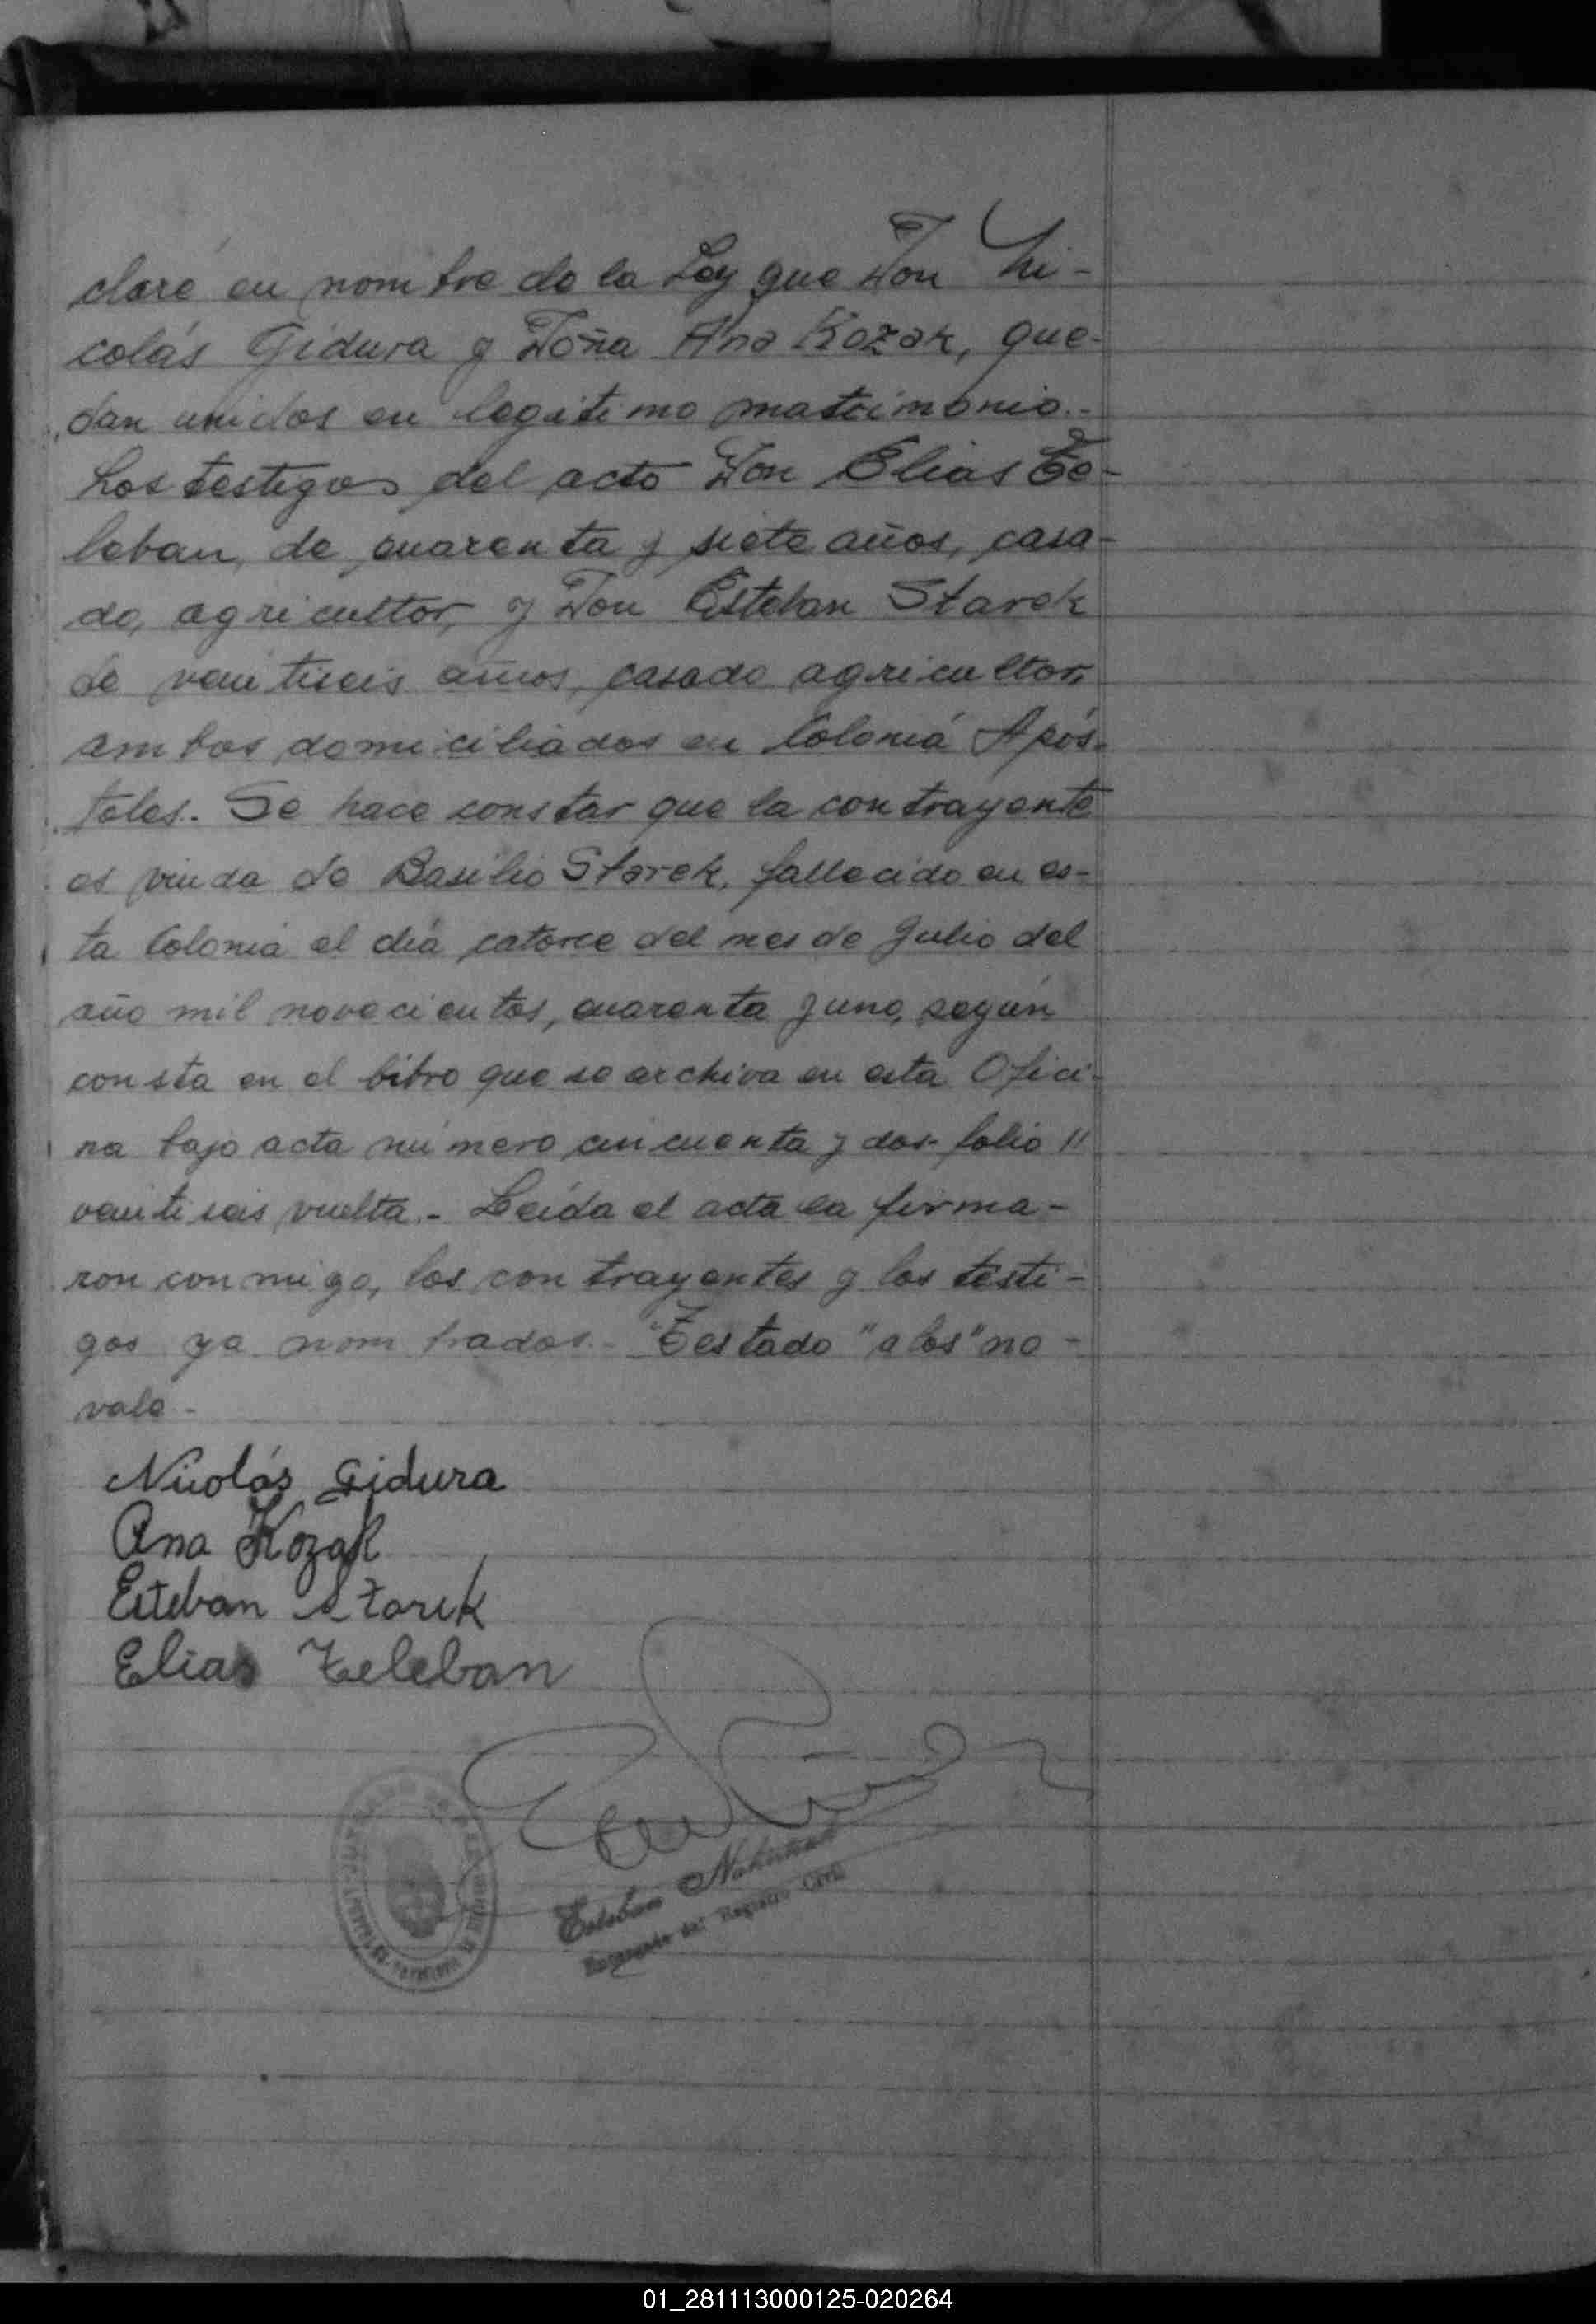 claré en nombre de la Ley que Don Ni-
colás Gidura y Doña Ana Kozak, que-
dan unidos en legitimo matrimonio.-
Los testigos del acto Don Elias Te-
leban, de cuarenta y siete años, casa-
do, agricultor, y Don Esteban Starek
de veintiseis años, casado agricultor,
ambos domiciliados en Colonia Após-
toles.- Se hace constar que la contrayente
es viuda de Basilio Starek, fallecido en es-
ta Colonia el dia catorce del mes de Julio del
año mil novecientos, cuarenta y uno, según
consta en el libro que se archiva en esta Ofici-
na bajo acta número cincuenta y dos- folio "
veintiseis vuelta.- Leída el acta la firma-
ron conmigo, los contrayentes y los testi-
gos ya nombrados.- Testado "a los" no -
vale -
Nicolás Gidura
Ana Kozak
Esteban Starek
Elias Teleban
Esteban
Encargado del Registro Civil
01_281113000125-020264